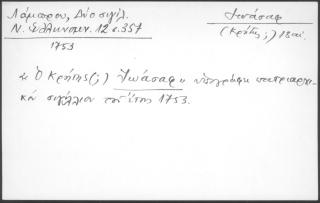 Λάμπρου, Δύο σιγίλ.
Ν. Ἑλληνομν. 12 σ. 357
1753
Ἰωάσαφ
(Κρήτης;) 18 αἰ.
« Ὁ Κρήτης (;) Ἰωάσαφ » ὑπογράφει πατριαρχι-
κὸν σιγίλλιον τοῦ ἔτους 1753.